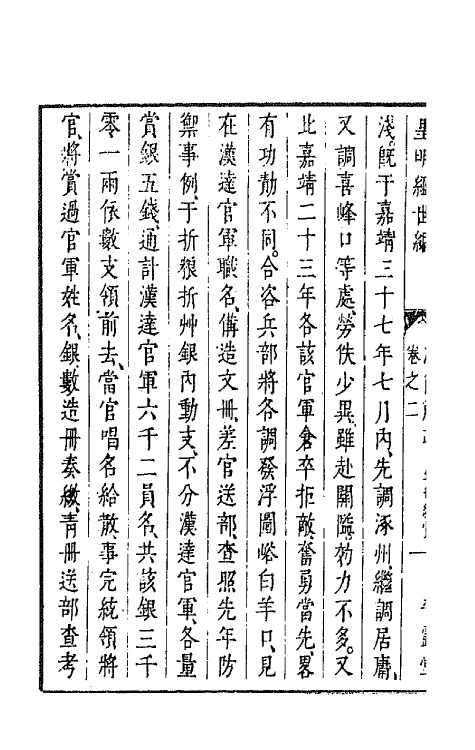 皇明經世編 卷之二
淺。旣于嘉靖三十七年七月內、先調涿州、繼調居庸、
又調喜峰口等處、勞佚少異、雖赴關隘、効力不多。又
比嘉靖二十三年各該官軍倉卒拒敵、奮勇當先、畧
有功勣不同。合咨兵部將各調發浮圖峪白羊口、見
在漢達官軍職名、備造文冊、差官送部、查照先年防
禦事例、于折粮折艸銀內動支、不分漢達官軍、各量
賞銀五錢、通計漢達官軍六千二員名、共該銀三千
零一兩、依數支領前去、當官唱名給散、事完統領將
官、將賞過官軍姓名、銀數造冊奏繳、靑冊送部查考